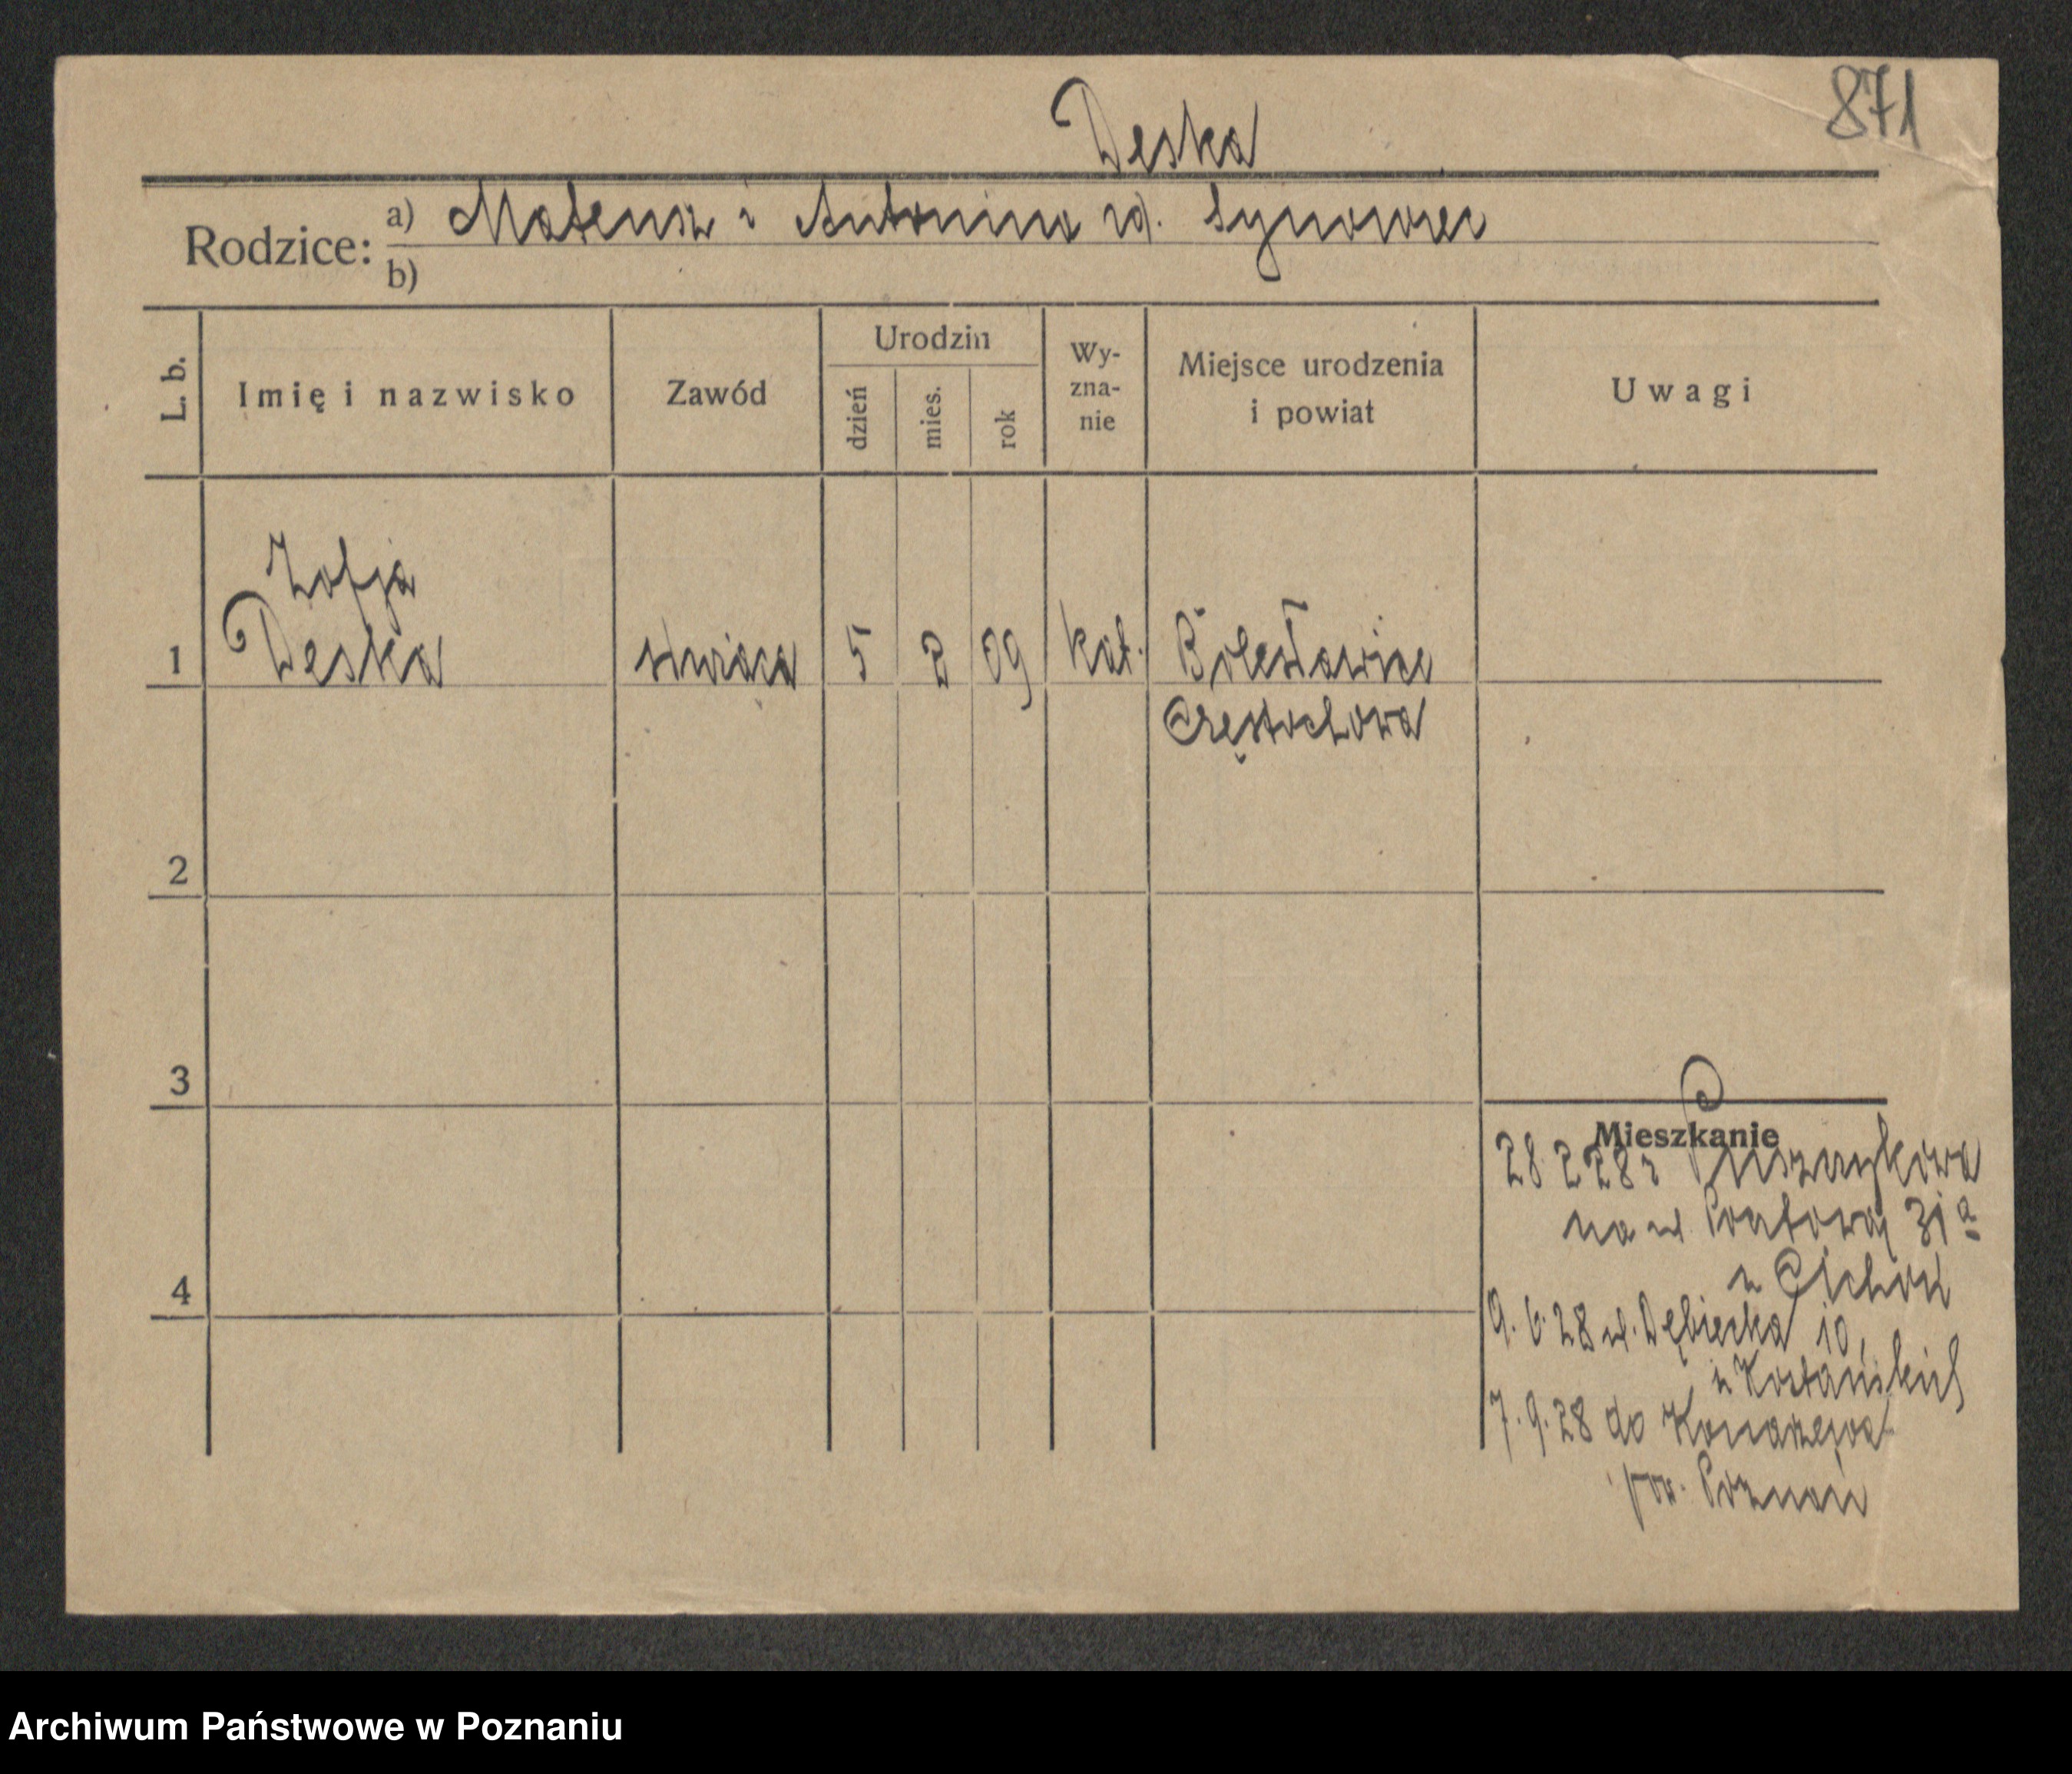 871
Deska
Rodzice: a) Mateusz i Antonina rd. Synowiec
b)
L. b.
Imię i nazwisko
Zawód
Urodzin
dzień
mies.
rok
Wy-
zna-
nie
Miejsce urodzenia
i powiat
Uwagi
Zofja
1 Deska służąca 5 2 09 kat. Bolesławiec
Częstochowa
2
3
Mieszkanie
28 2 28 z
na ul. 31a
u Cichoń
4
9. 6. 28 ul. Dębiecka 10,
u
7. 9. 28 do Konarzewa
pow. Poznań
Archiwum Państwowe w Poznaniu